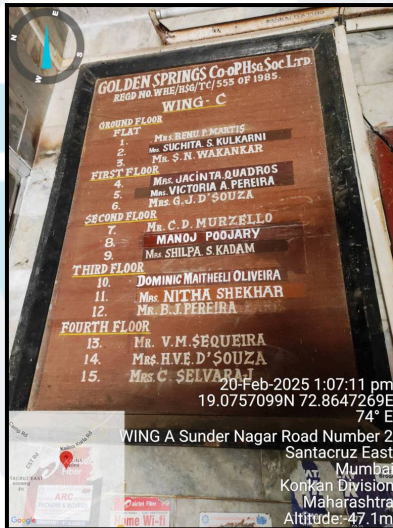 N
E
S
W
GOLDEN SPRINGS CO-OP. HSG. SOC. LTD.
REGD NO. WHE/HSG/TC/555 OF 1985.
WING - C
GROUND FLOOR
FLAT
1. MRS. BENU. P. MARTIS
2. MRS. SUCHITA. S. KULKARNI
3. MR. S.N. WAKANKAR
FIRST FLOOR
4. MRS. JACINTA. QUADROS
5. MRS. VICTORIA A. PEREIRA
6. MRS. G.J. D'SOUZA
SECOND FLOOR
7. MR. C.D. MURZELLO
8. MANOJ POOJARY
9. MRS. SHILPA. S. KADAM
THIRD FLOOR
10. DOMINIC MAITHEELI OLIVEIRA
11. MRS. NITHA SHEKHAR
12. MR. B.J. PEREIRA
FOURTH FLOOR
13. MR. V.M. SEQUEIRA
14. MRS. H.V.E. D'SOUZA
15. MRS. C. SELVARAJ
20-Feb-2025 1:07:11 pm
19.0757099N 72.8647269E
74° E
WING A Sunder Nagar Road Number 2
Santacruz East
Mumbai
Konkan Division
Maharashtra
Altitude:-47.1m
CST Rd
Google
ARC
airtel Fiber
Home Wi-fi